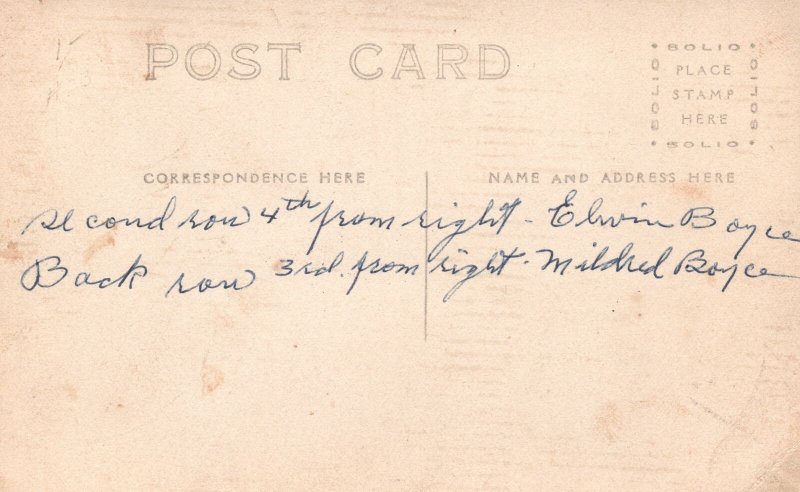 POST CARD
SOLIO
SOLIO PLACE SOLIO
STAMP
HERE
SOLIO
CORRESPONDENCE HERE
NAME AND ADDRESS HERE
second row 4th from right - Elwin Boyce
Back row 3rd. from right - Mildred Boyce